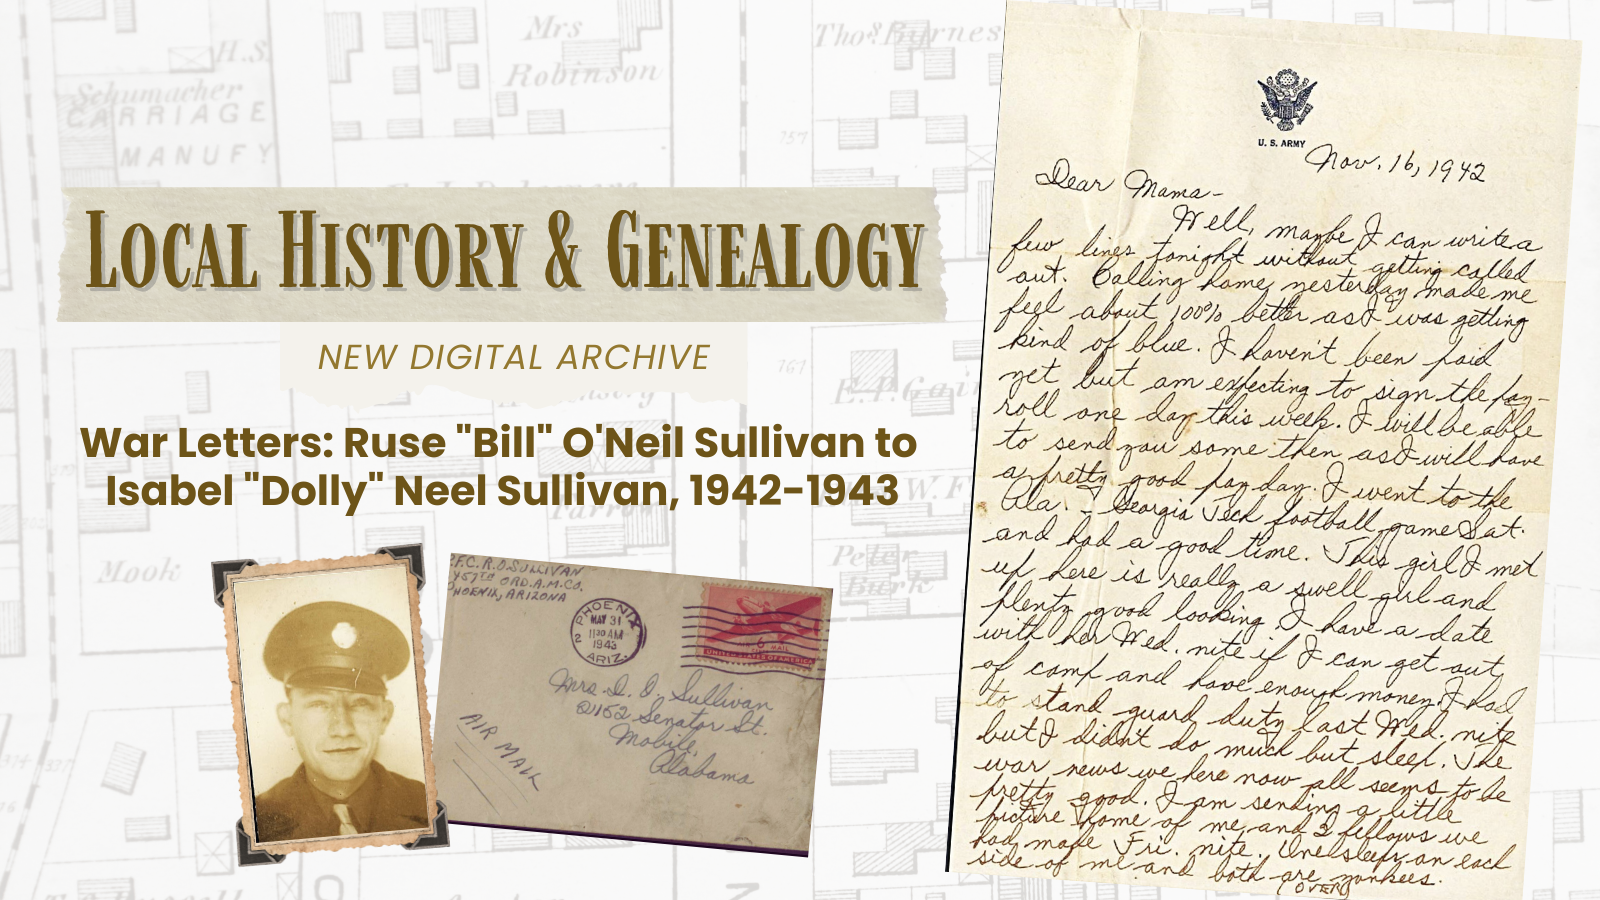 H.S.
Schumacher
CARRIAGE
MANUFY
Mrs
Robinson
Thos. Byrnes
757
LOCAL HISTORY & GENEALOGY
NEW DIGITAL ARCHIVE
761
War Letters: Ruse "Bill" O'Neil Sullivan to
Isabel "Dolly" Neel Sullivan, 1942-1943
Mook
Peter
Burk
P.F.C. R.O. SULLIVAN
457TH ORD. A.M. CO.
PHOENIX, ARIZONA
PHOENIX
2
MAY 31
1130 AM
1943
ARIZ.
6
MAIL
UNITED STATES OF AMERICA
Mrs. D. O. Sullivan
2152 Senator St.
Mobile,
Alabama
AIR MAIL
U. S. ARMY
Nov. 16, 1942
Dear Mama-
Well, maybe I can write a
few lines tonight without getting called
out. Calling home yesterday made me
feel about 100% better as I was getting
kind of blue. I haven't been paid
yet but am expecting to sign the pay-
roll one day this week. I will be able
to send you some then as I will have
a pretty good pay day. I went to the
Ala. - Georgia Tech football game Sat.
and had a good time. This girl I met
up here is really a swell girl and
plenty good looking. I have a date
with her Wed. nite if I can get out
of camp and have enough money. I had
to stand guard duty last Wed. nite
but I didn't do much but sleep. The
war news we here now all seems to be
pretty good. I am sending a little
picture home of me and 2 fellows we
had made Fri. nite. One sleeps on each
side of me and both are yankees.
(OVER)